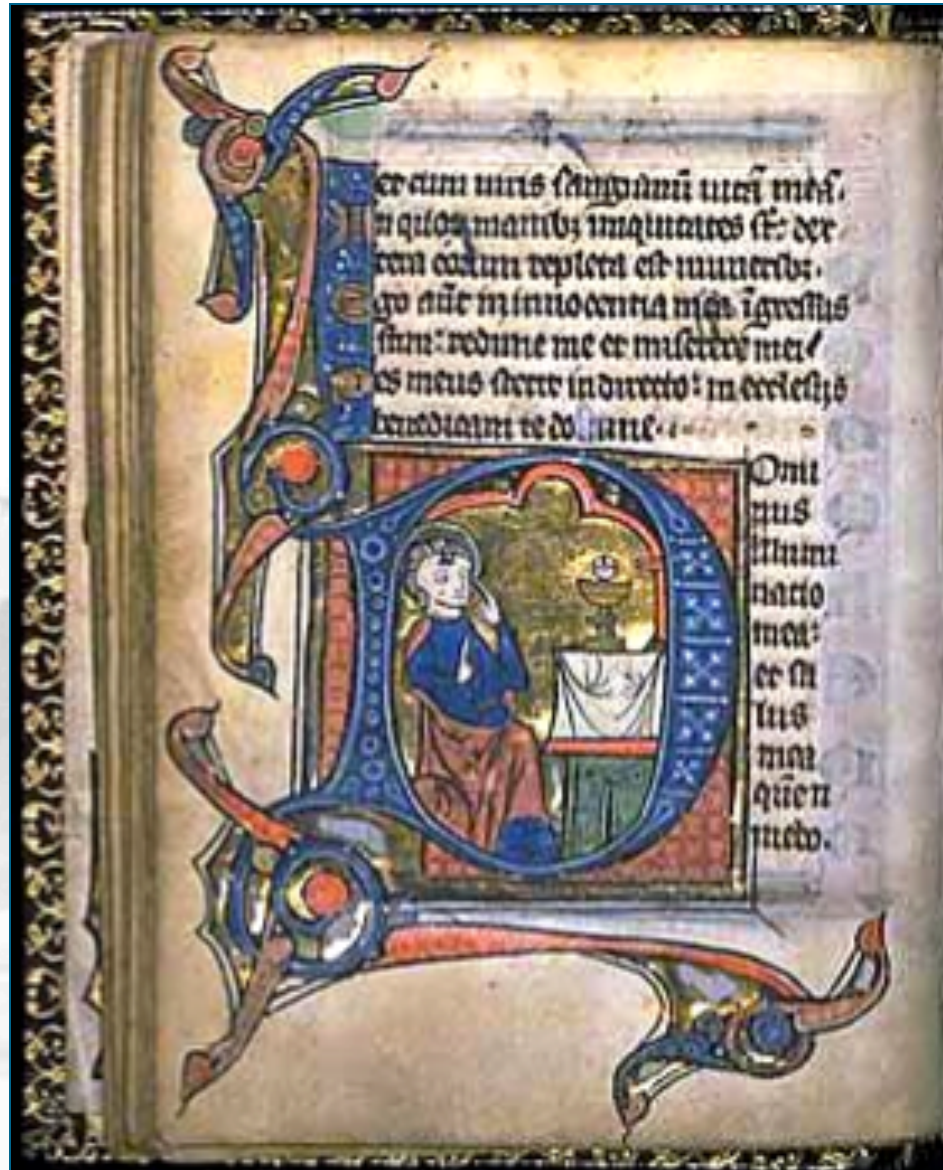 et cum uiris sanguinū uitā meā.
In quoꝝ manibꝫ iniquitates st̄: dex
tera eorum repleta est muneribꝫ.
Ego aūt in innocentia mea īgressus
sum: redime me et miserere mei
Pes meus stetit in directo: in ecclesiis
benedicam te domine.
DOmi
nus
illumi
natio
mea:
et sa
lus
mea
quē ti
mebo.